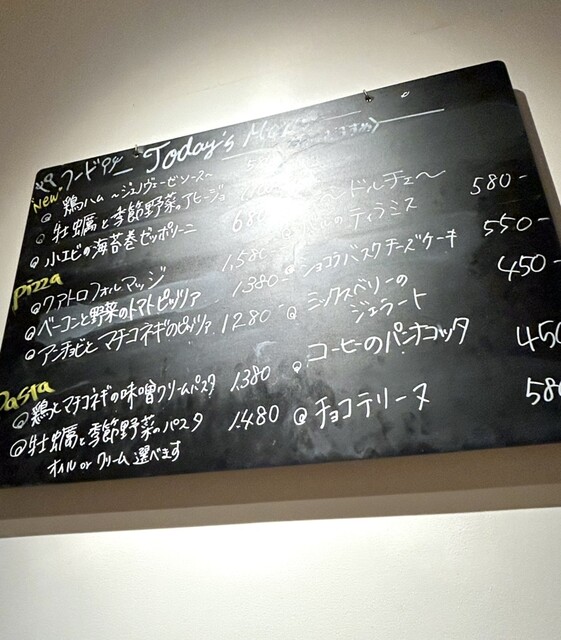 フード Today's
New!
鶏ハム ～ジェノヴェーゼソース～
牡蠣と季節野菜のアヒージョ
小エビの海苔巻ゼッポリーニ 680
Pizza
クアトロフォルマッジ 1,580
ベーコンと野菜のトマトピッツァ 1380
アンチョビとマチコネギのピッツァ 1280
Pasta
鶏とマチコネギの味噌クリームパスタ 1.380
牡蠣と季節野菜のパスタ 1.480
オイル or クリーム 選べます
ドルチェ～
ティラミス 580-
ショコラバスクチーズケーキ 550-
ミックスベリーの
ジェラート 450-
コーヒーのパンナコッタ 450
チョコテリーヌ 580